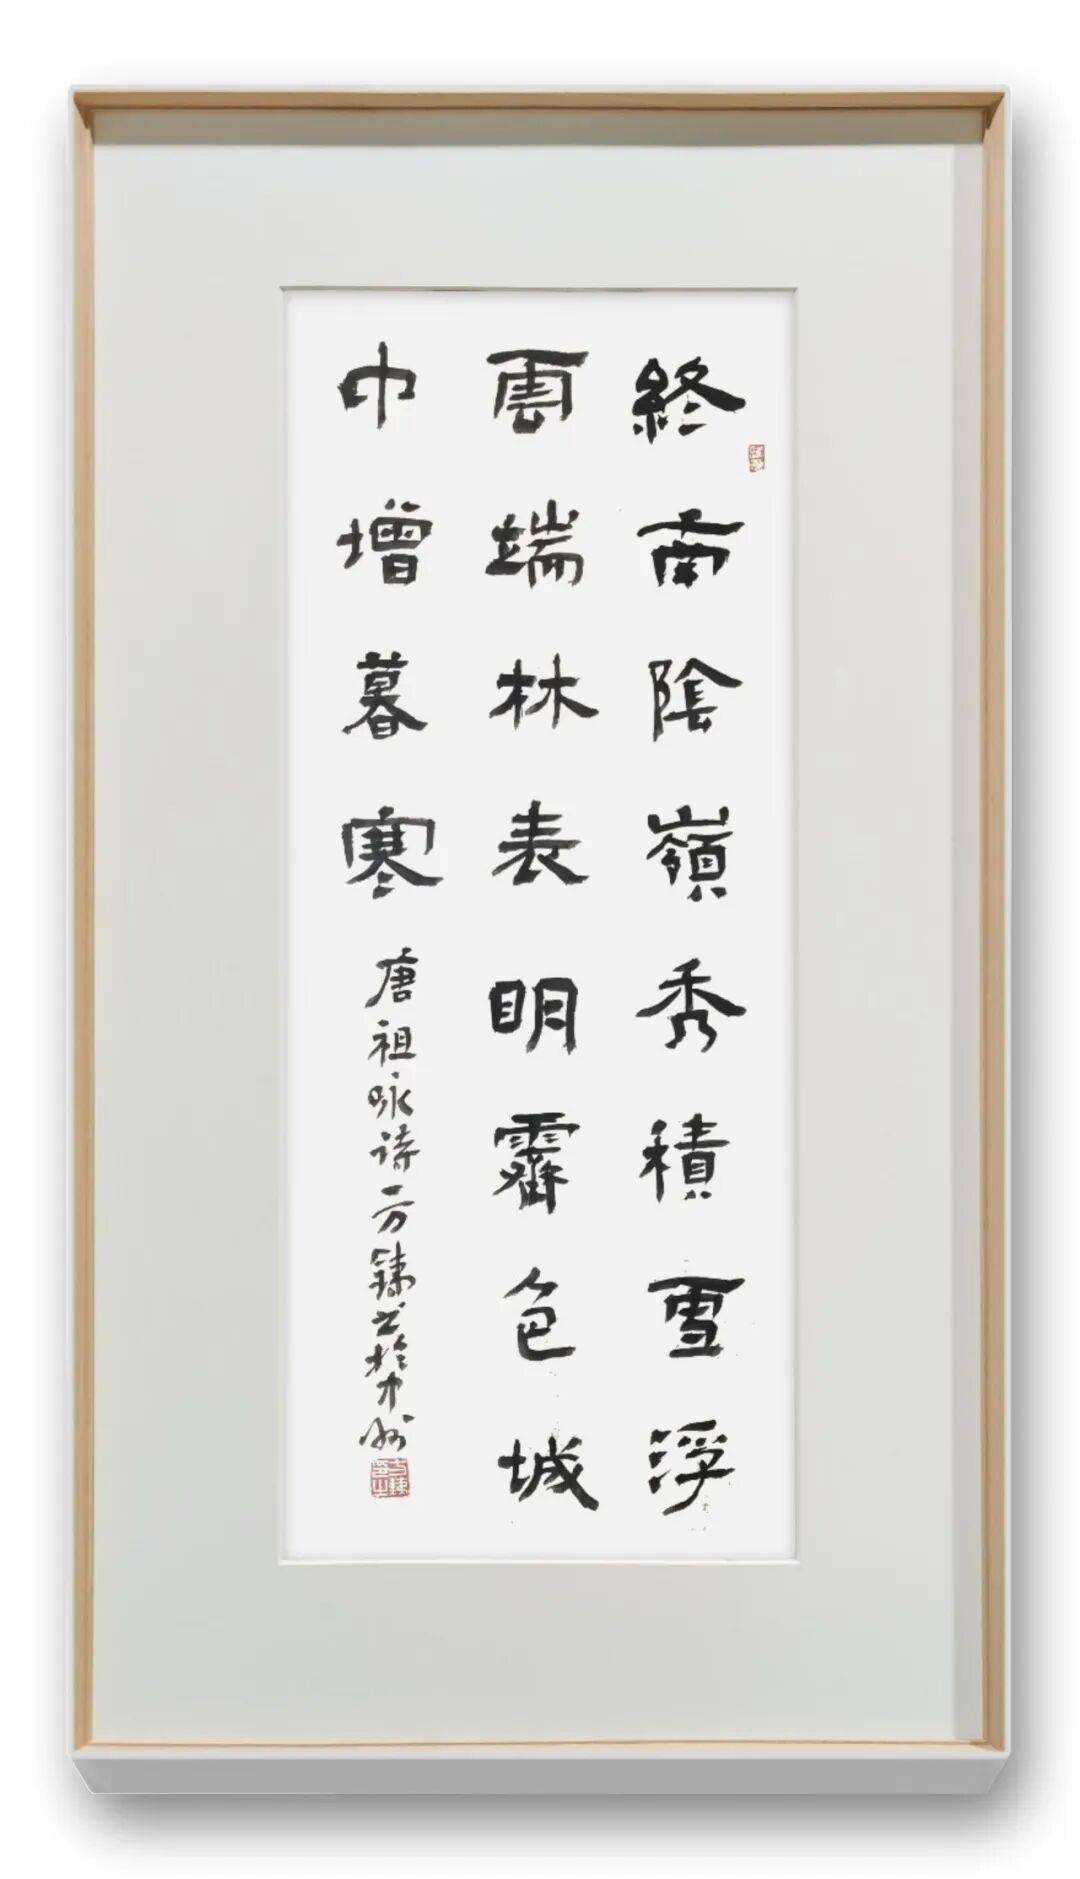 終南陰嶺秀積雪浮
雲端林表明霽色城
巾增暮寒
唐祖咏诗一方鍊书於中州